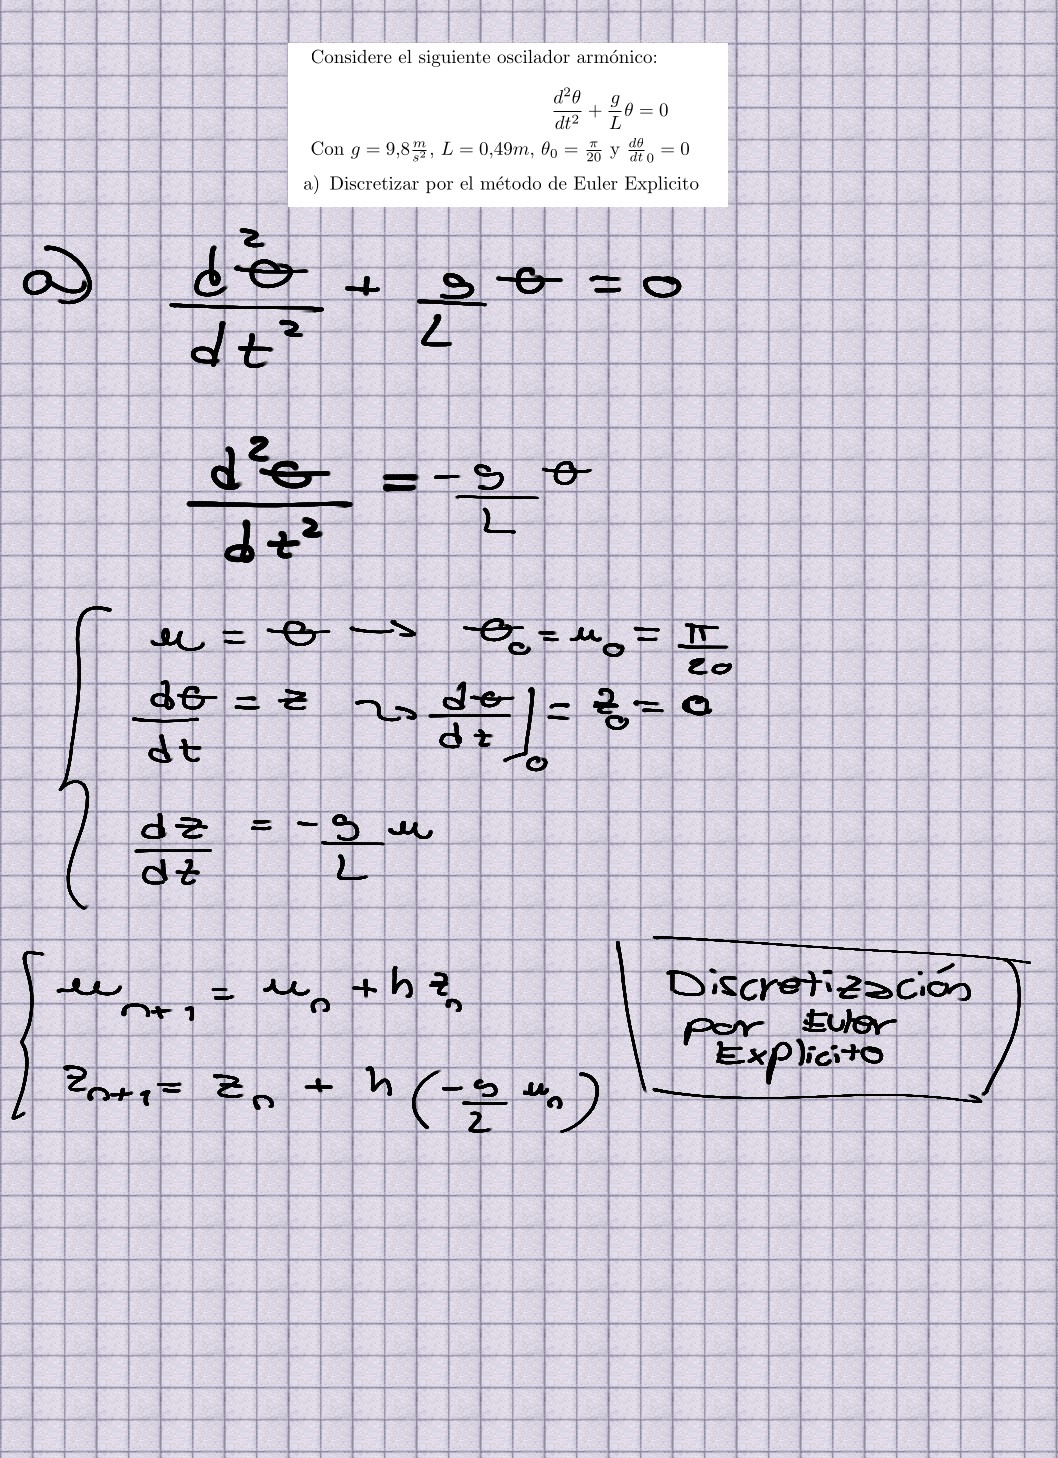 Considere el siguiente oscilador armónico:
d²θ/dt² + g/L θ = 0
Con g = 9,8 m/s², L = 0,49m, θ₀ = π/20 y dθ/dt ₀ = 0
a) Discretizar por el método de Euler Explicito
a) d²θ/dt² + g/L θ = 0
d²θ/dt² = -g/L θ
u = θ → θ₀ = u₀ = π/20
dθ/dt = z → dθ/dt |₀ = z₀ = 0
dz/dt = -g/L u
uₙ₊₁ = uₙ + h zₙ
zₙ₊₁ = zₙ + h (-g/2 uₙ)
Discretización
por Euler
Explicito